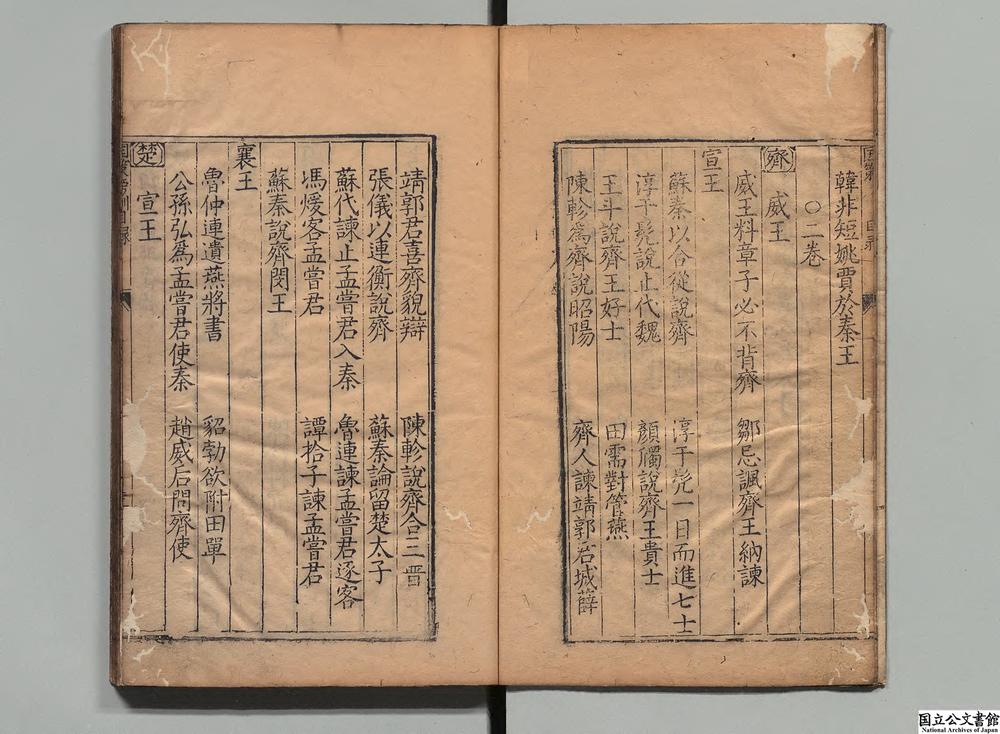 韓非短姚賈於秦王
○二巻
齊 威王
威王料章子必不背齊 鄒忌諷齊王納諫
宣王
蘇秦以合從說齊 淳于髠一日而進七士
淳于髠說止代魏 顔斶說齊王貴士
王斗說齊王好士 田需對管燕
陳軫爲齊說昭陽 齊人諫靖郭君城薛
靖郭君喜齊貌辯 陳軫說齊合三晋
張儀以連衡說齊 蘇秦論留楚太子
蘇代諫止孟嘗君入秦 魯連諫孟嘗君逐客
馮煖客孟嘗君 譚拾子諫孟嘗君
蘇秦說齊閔王
襄王
魯仲連遺燕將書 貂勃欲附田單
公孫弘爲孟嘗君使秦 趙威后問齊使
楚 宣王
国立公文書館
National Archives of Japan